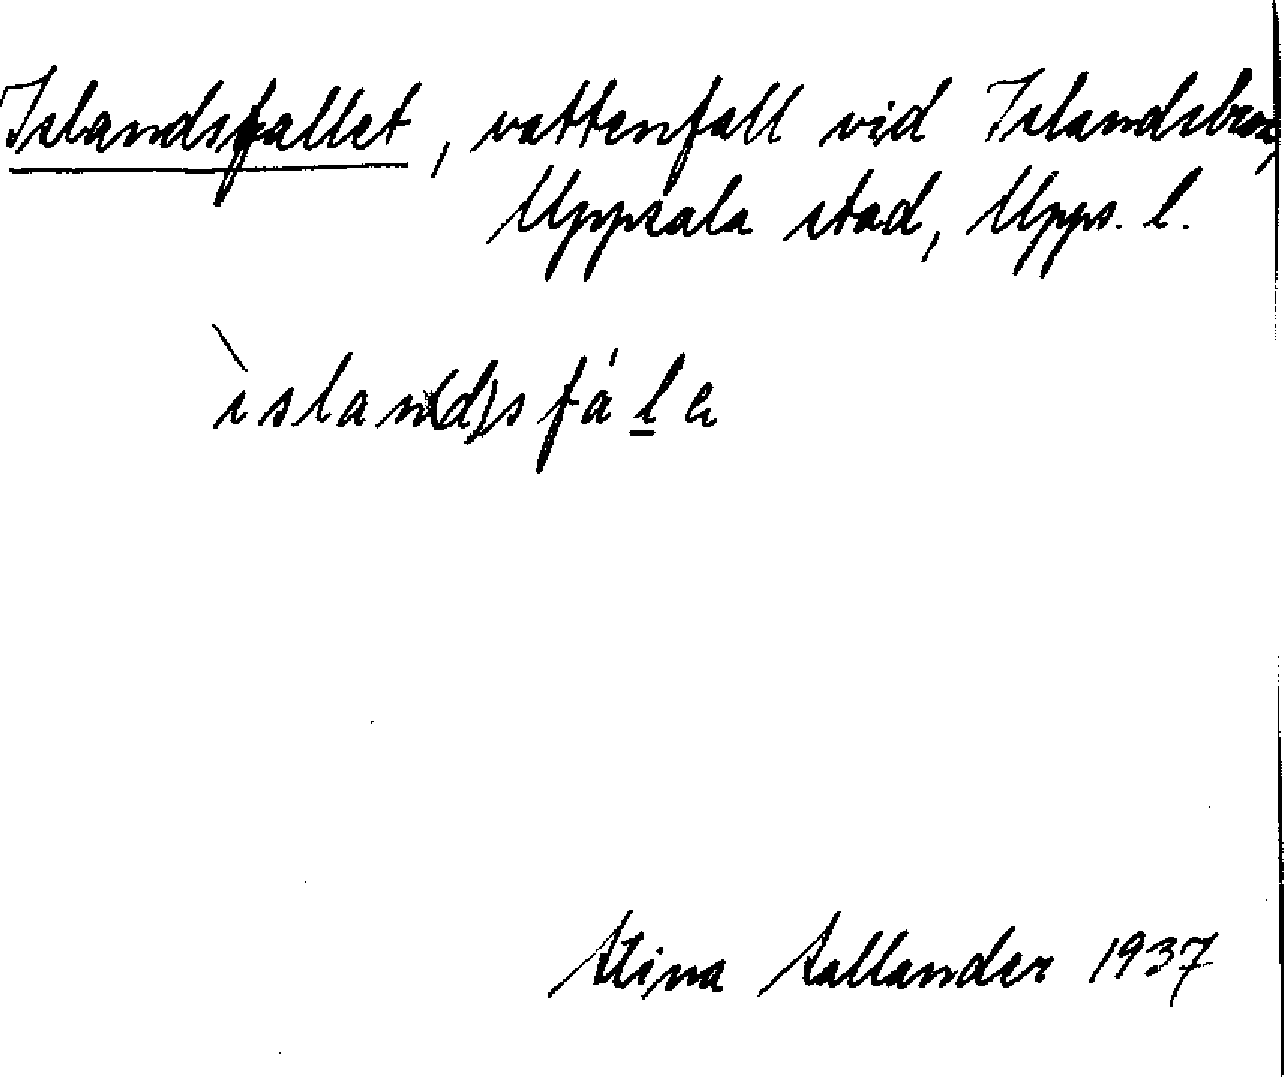 Islandsfallet, vattenfall vid Islandsbron,
Uppsala stad, Upps. l.
ìslan(d)sfálₑ
Stina Sallander 1937